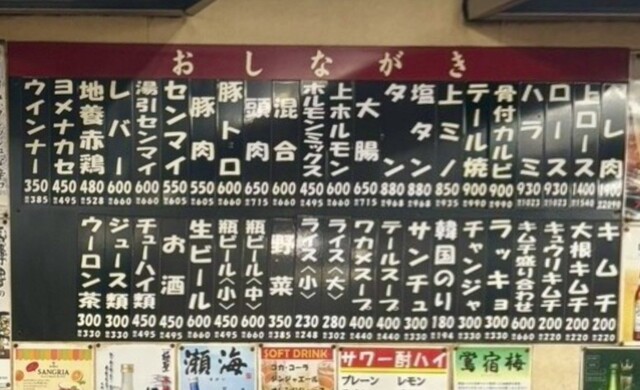 おしながき
ヘレ肉 1900 税込2090
上ロース 1400 税込1540
ロース 930 税込1023
ハラミ 930 税込1023
骨付カルビ 900 税込990
テール焼 900 税込990
上ミノ 850 税込935
塩タン 880 税込968
タン 880 税込968
大腸 650 税込715
上ホルモン 600 税込660
ホルモンミックス 450 税込495
混合 600 税込660
頭肉 650 税込715
豚トロ 600 税込660
豚肉 550 税込605
センマイ 550 税込605
湯引センマイ 600 税込660
レバー 600 税込660
地養赤鶏 480 税込528
ヨメナカセ 450 税込495
ウインナー 350 税込385
キムチ 200 税込220
大根キムチ 200 税込220
キュウリキムチ 200 税込220
キムチ盛り合わせ 600 税込660
ラッキョ 300 税込330
チャンジャ 300 税込330
韓国のり 180 税込194
サンチュ 300 税込330
テールスープ 400 税込440
ワカメスープ 400 税込440
ライス〈大〉 280 税込302
ライス〈小〉 230 税込248
野菜 350
瓶ビール〈中〉 600 税込660
瓶ビール〈小〉 450 税込495
生ビール 600 税込660
お酒 450 税込495
チューハイ類 450 税込495
ジュース類 300 税込330
ウーロン茶 300 税込330
SANGRIA
瀬海
SOFT DRINK
コカ・コーラ
ジンジャエール
サワー酎ハイ
プレーン レモン
鶯宿梅